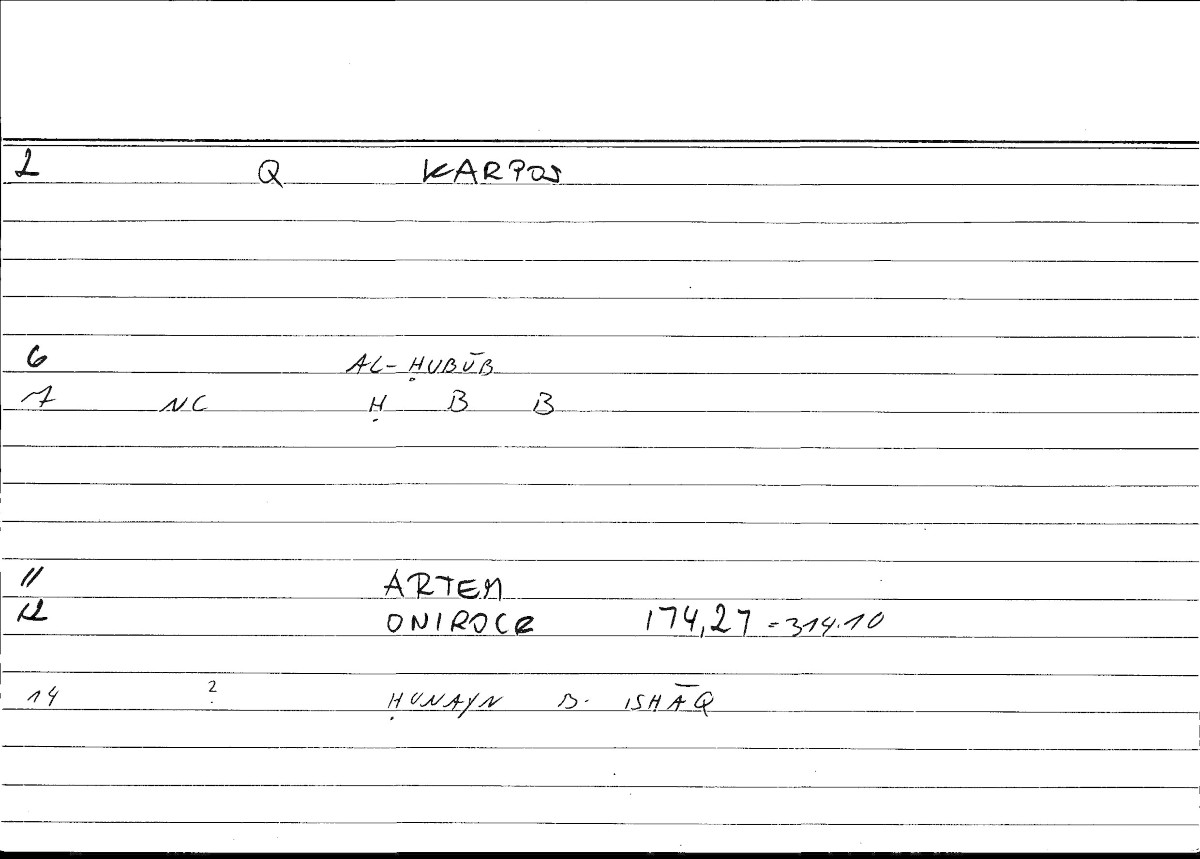 2 Q KARPOS
6 AL-ḤUBŪB
7 NC Ḥ B B
11 ARTEM
12 ONIROCR 174,27 = 314.10
14 2 ḤUNAYN B. ISHĀQ